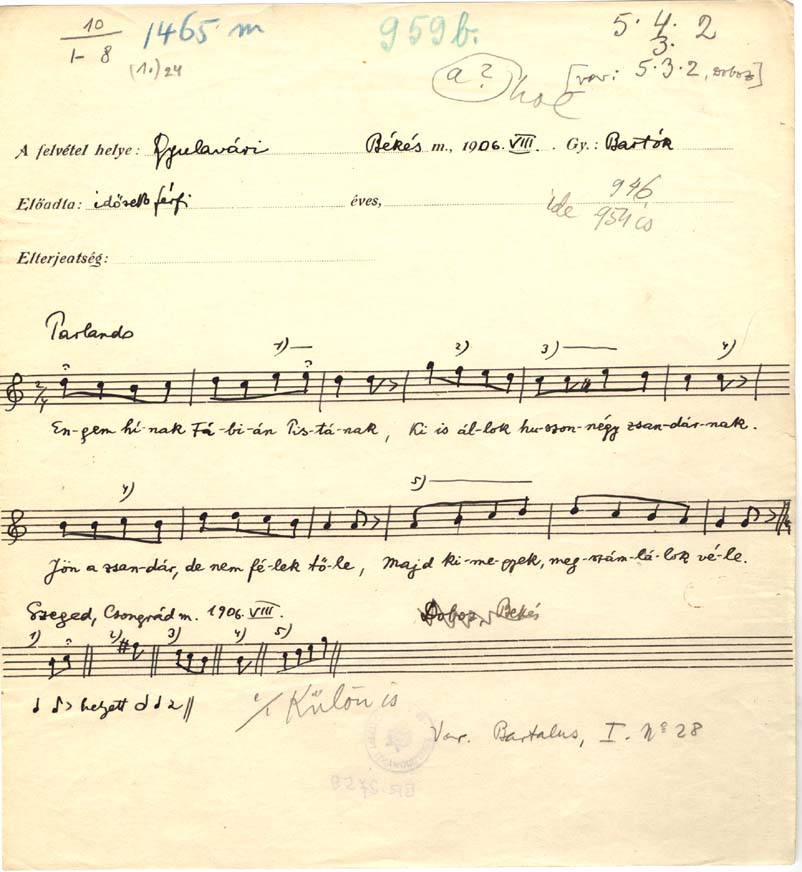 10
1-8
1465 m
959 b.
5. 4. 2
3.
(1.) 24
a? hol
[var: 5.3.2, Doboz]
A felvétel helye: Gyulavári Békés m., 1906. VIII. Gy.: Bartók
Előadta: idősebb férfi éves,
946
ide 954 is
Elterjeatség:
Parlando
1) 2) 3) 4)
2/4
En-gem hí-nak Fá-bi-án Pis-tá-nak, Ki is ál-lok hu-szon-négy zsan-dár-nak.
4) 5)
Jön a zsan-dár, de nem fé-lek tő-le, Majd ki-me-gyek, meg-szám-lá-lok vé-le.
Szeged, Csongrád m. 1906. VIII. Doboz, Békés
1) 2) 3) 4) 5)
helyett
Külön is
Var. Bartalus, I. No 28